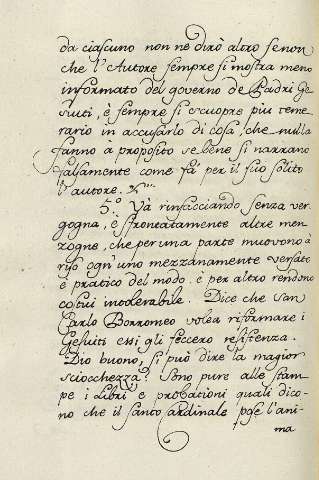 da ciascuno non ne dirò altro se non
che l'Autore sempre si mostra meno
informato del governo de Padri Ge
suiti, è sempre si scuopre piu teme
rario in accusarlo di cosa, che nulla
fanno à proposito se bene si narrano
falsamente come fà per il suo solito
l'autore.
5.º Và rinfacciando senza ver
gogna, è sfrontatamente altre men
zogne, che per una parte muovono à
riso ogn'uno mezzanamente versato
è pratico del modo. è per altro rendono
costui intolerabile. Dice che San
Carlo Borromeo volea riformare i
Gesuiti essi gli feccero resistenza.
Dio buono, si può dire la magior
sciocchezza? Sono pure alle stam
pe i Libri è probationi quali dico-
no che il santo Cardinale pose l'ani
ma